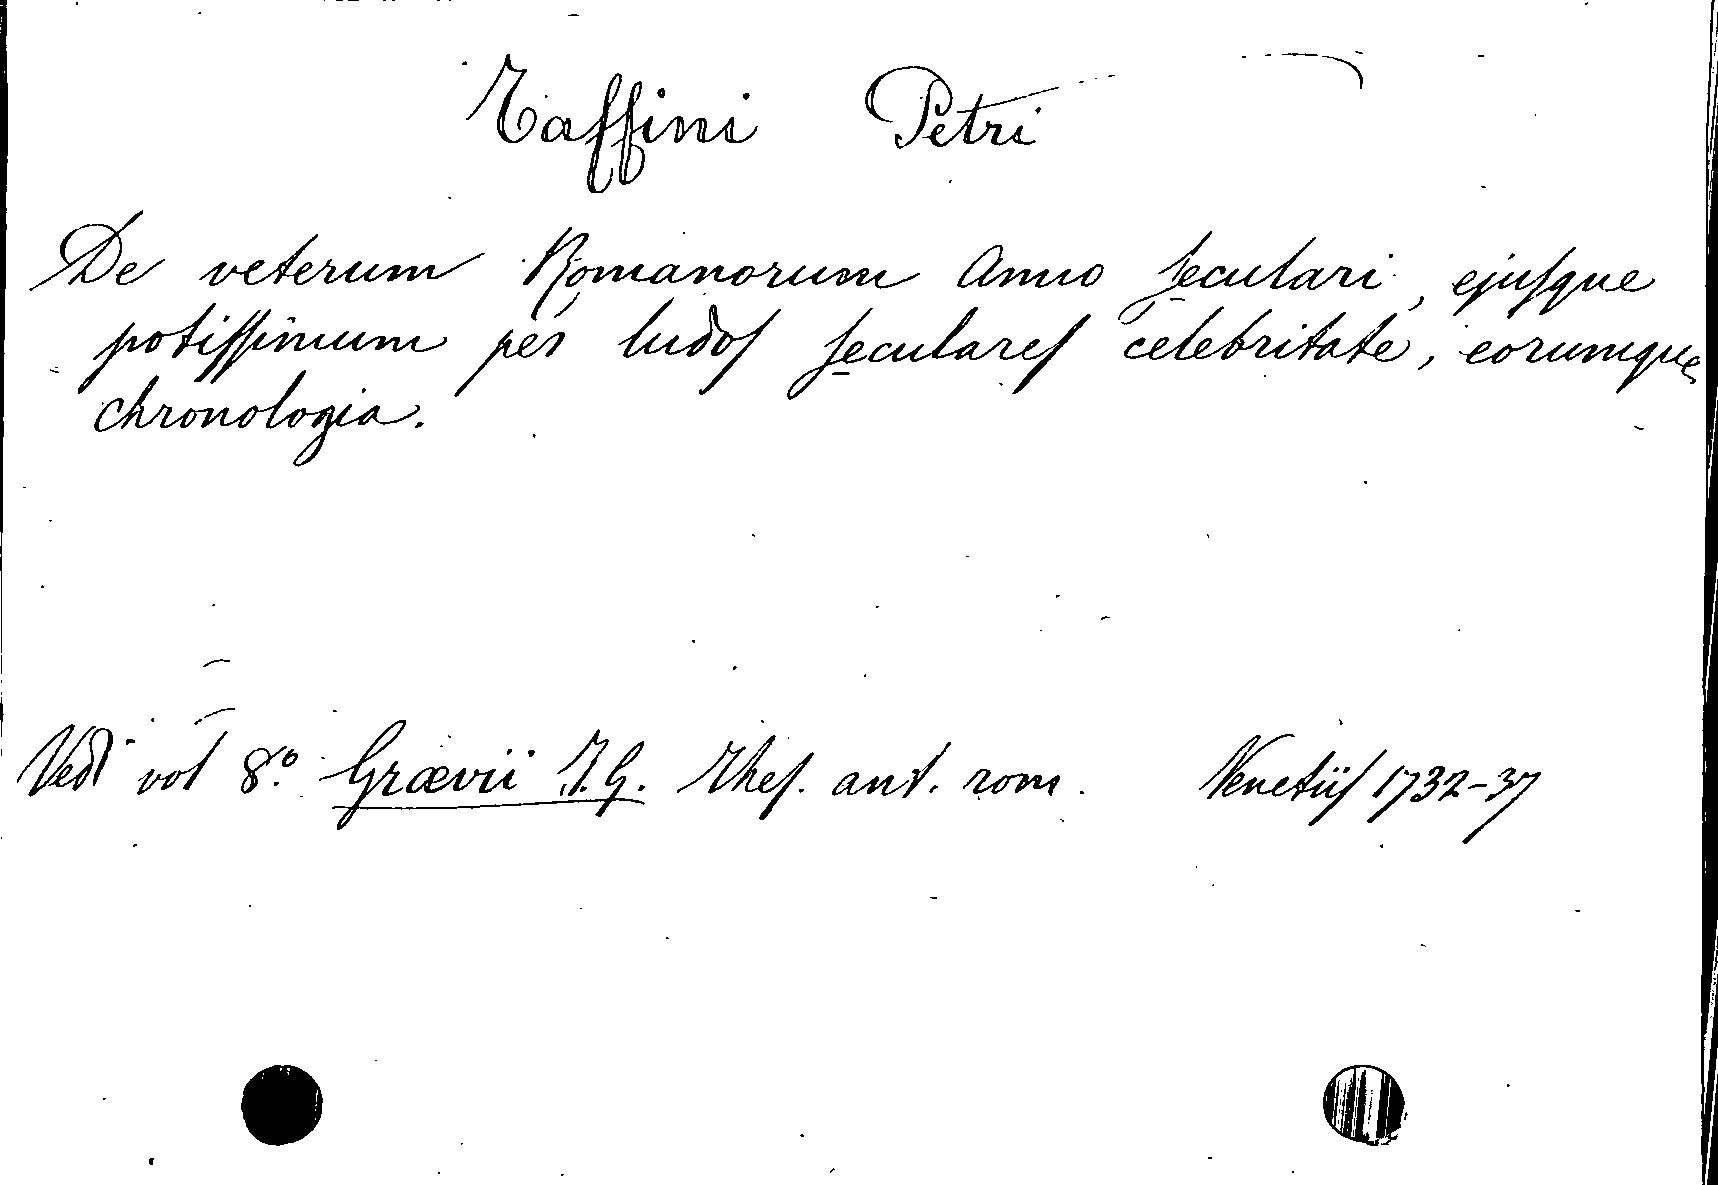 Taffini Petri
De veterum Romanorum Anno seculari, ejusque
potissimum per ludos seculares celebritate, eorumque
chronologia.
Vedi vol 8.° Grævii J. G. Thes. ant. rom. Venetiis 1732-37